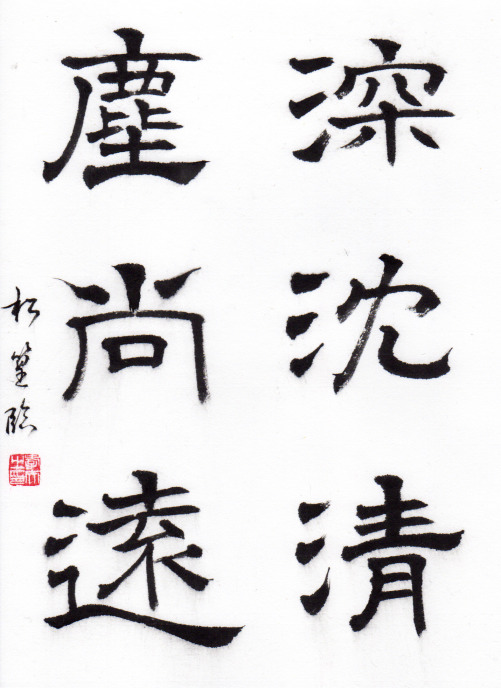 深沈清
塵尚遠
松篁臨